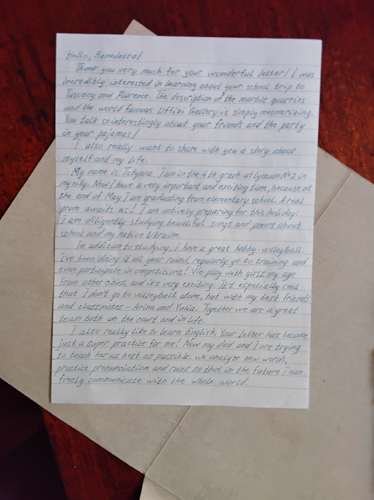 Hello, Benedetta!
Thank you very much for your wonderful letter! I was
incredibly interested in learning about your school trip to
Tuscany and Florence. The description of the marble quarries
and the world famous Uffizi Gallery is simply mesmerizing.
You talk so interestingly about your friends and the party
in your pajamas!
I also really want to share with you a story about
myself and my life.
My name is Tatyana. I am in the 4th grade at Lyceum №2 in
my city. Now I have a very important and exciting time, because at
the end of May I am graduating from elementary school. A real
prom awaits us! I am actively preparing for this holiday:
I am diligently studying beautiful songs and poems about
school and my native Ukraine.
In addition to studying, I have a great hobby-volleyball
I've been doing it all year round, regularly go to training and
even participate in competitions! We play with girls my age
from other cities, and it's very exciting. It's especially cool
that I don't go to volleyball alone, but with my best friends
and classmates - Arina and Yulia. Together we are a great
team both on the court and in life.
I also really like to learn English. Your letter has become
just a super practice for me! Now my dad and I are trying
to teach as best as possible: we analyze new words,
practice pronunciation and rules so that in the future I can
freely communicate with the whole world.